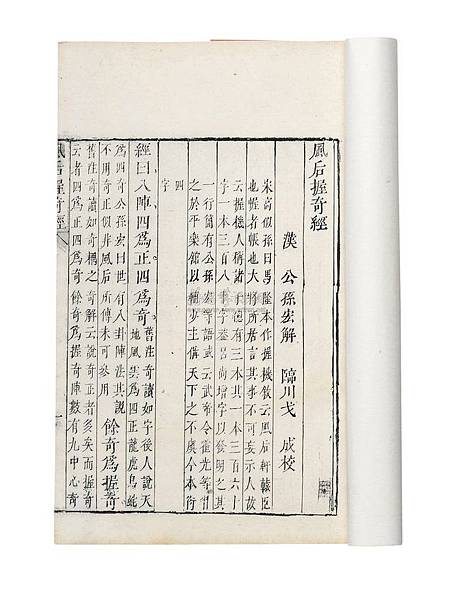 風后握奇經
漢 公孫宏解 臨川戈 成校
宋高似孫曰馬隆本作握機敘云風后軒轅臣
也幄者帳也大將所居言其事不可妄示人故
云握機人稱諸子總有三本其一本三百六十
字一本三百八十字蓋呂尚增字以發明之其
一行簡有公孫宏等語或云武帝令霍光等
之於平樂館以輔少主備天下之不虞今本衍
四
字
經曰八陣四爲正四爲奇
舊注奇讀如字後人說天
地風雲爲四正龍虎鳥蛇
爲四奇公孫宏曰世有八卦陣法其說
不用奇正似非風后所傳未可參用
餘奇爲握奇
舊注奇讀如奇耦之奇解云說奇正者多矣而握奇
云者四爲正四爲奇餘奇爲握奇陣數有九中心奇
風后握奇經
一